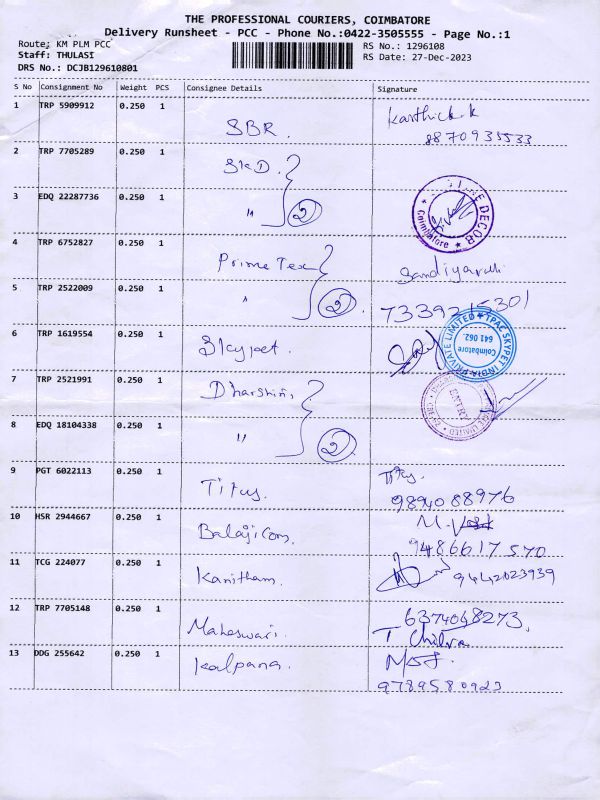 THE PROFESSIONAL COURIERS, COIMBATORE
Delivery Runsheet - PCC - Phone No.:0422-3505555 - Page No.:1
Route; KM PLM PCC
RS No.: 1296108
Staff: THULASI
RS Date: 27-Dec-2023
DRS No.: DCJB129610801
S No Consignment No Weight PCS Consignee Details Signature
1 TRP 5909912 0.250 1 SBR. Karthick.k
8870935533
2 TRP 7705289 0.250 1 SKD.
3 EDQ 22287736 0.250 1 " 2
DECOR Coimbatore
4 TRP 6752827 0.250 1 Prime Tex
5 TRP 2522009 0.250 1 " 2
6 TRP 1619554 0.250 1 Skypet.
TPAC SKYPET INDIA PRIVATE LIMITED Coimbatore 641 062.
7 TRP 2521991 0.250 1 Dharshini,
ENTRY LIMITED
8 EDQ 18104338 0.250 1 " 2
9 PGT 6022113 0.250 1 Titus. Titus.
9894088976
10 HSR 2944667 0.250 1 Balaji Com.
9486617570
11 TCG 224077 0.250 1 Kanitham. 9442023939
12 TRP 7705148 0.250 1 Maheswari. 6374048273,
13 DDG 255642 0.250 1 Kalpana.
9789580923